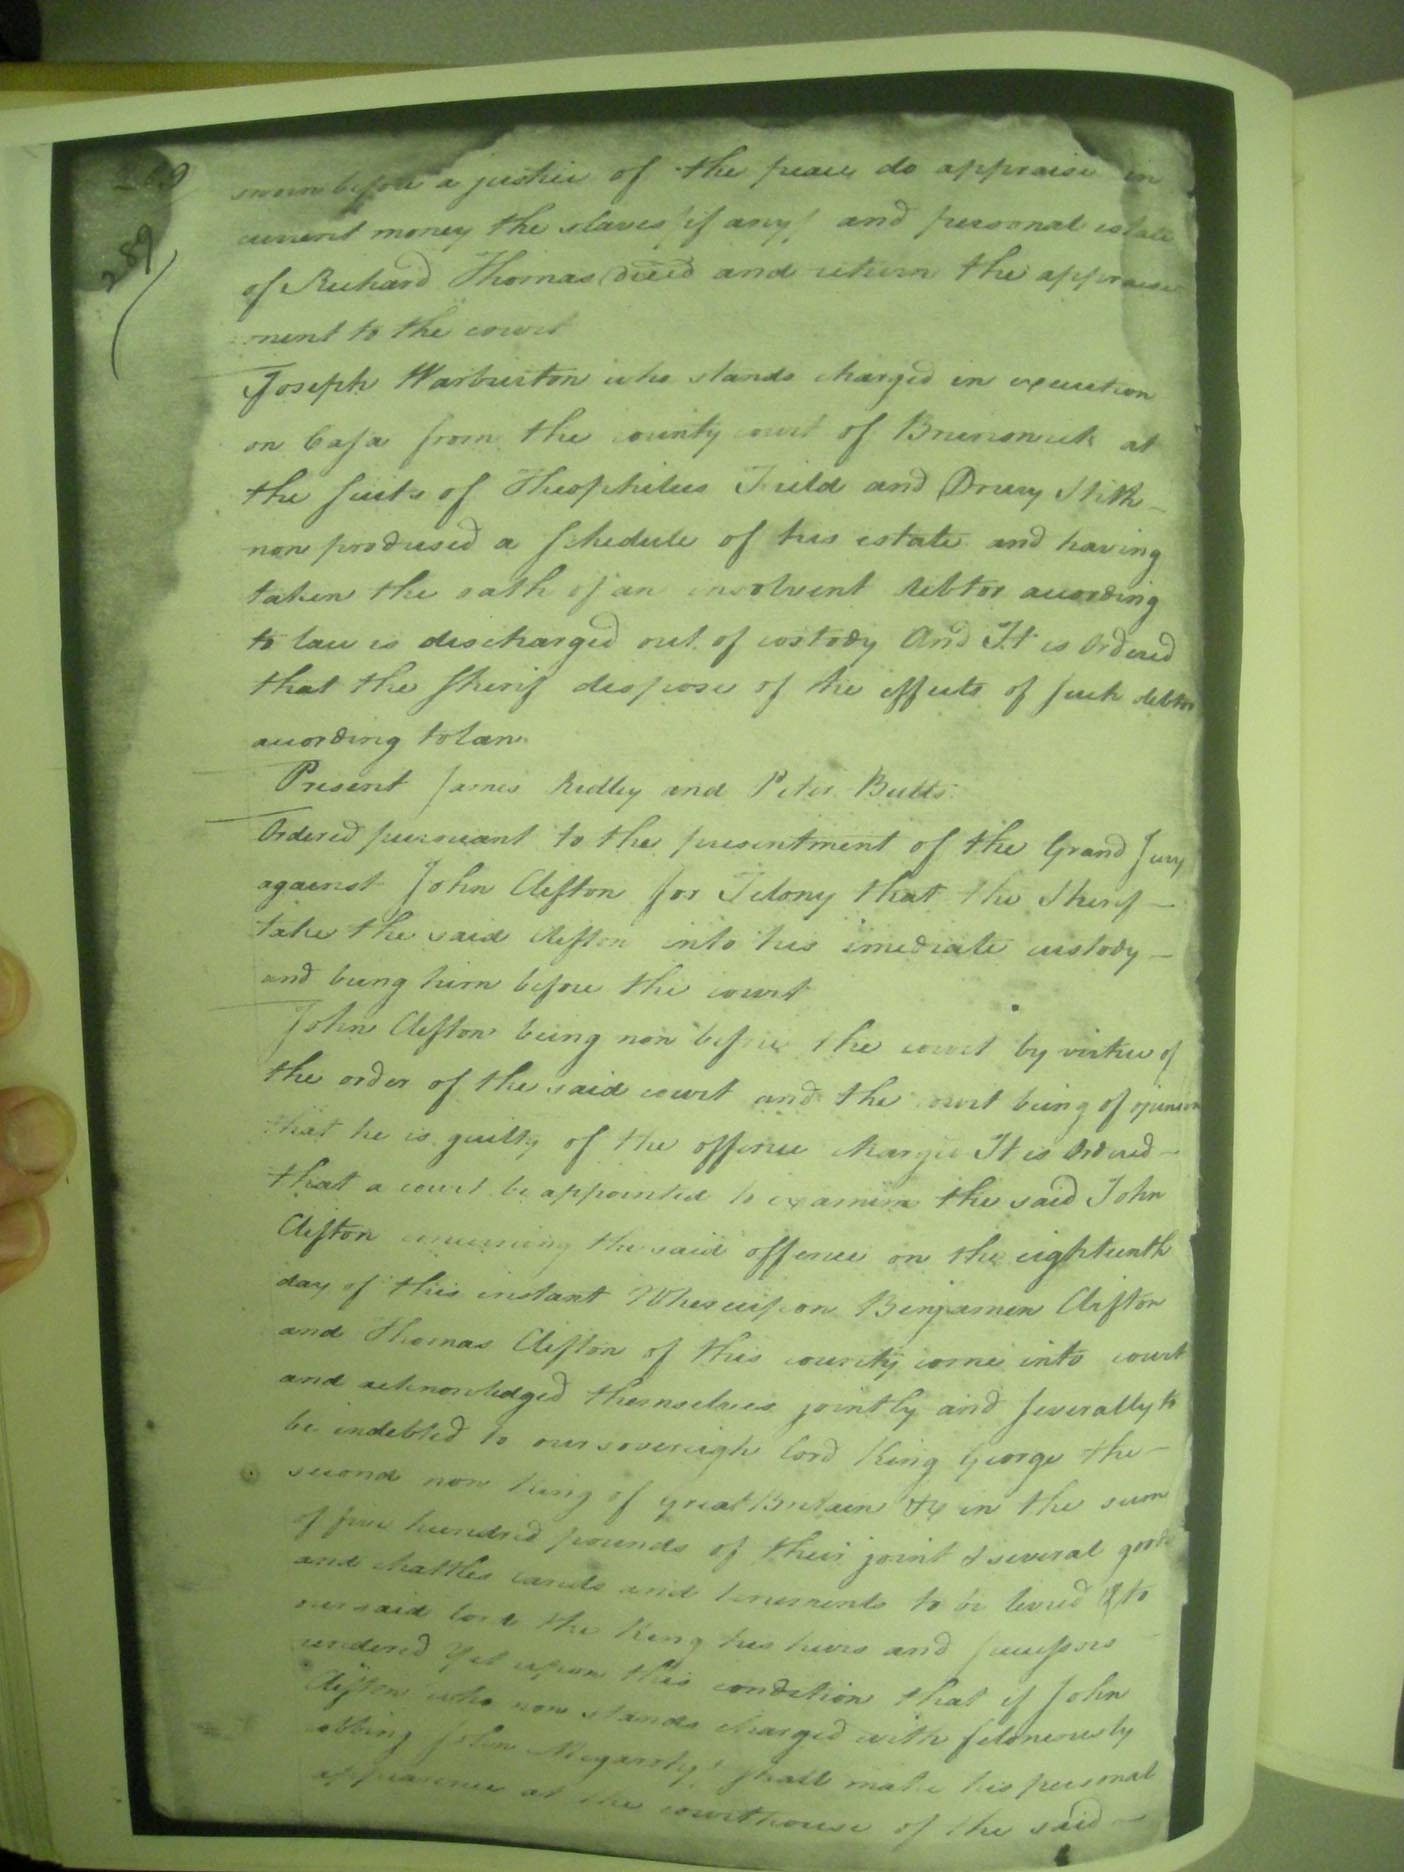 289
sworn before a justice of the peace do appraise in
current money the slaves /if any/ and personal estate
of Richard Thomas decd and return the appraise
ment to the court
Joseph Warburton who stands charged in execution
on Casa from the county court of Brunswick at
the suits of Theophilus Field and Drury Stith
now prodused a schedule of his estate and having
taken the oath of an insolvent debtor according
to law is discharged out of custody And It is Ordered
that the Sherif dispose of the effects of such debtor
according to law.
Present James Ridley and Peter Butts.
Ordered pursuant to the presentment of the Grand Jury
against John Clifton for Felony that the Sherif
take the said Clifton into his imediate custody
and bring him before the court
John Clifton being now before the court by virtue of
the order of the said court and the court being of opinion
that he is guilty of the offence charged It is Ordered
that a court be appointed to examine the said John
Clifton concerning the said offence on the eighteenth
day of this instant Whereupon Benjamin Clifton
and Thomas Clifton of this county come into court
and acknowledged themselves jointly and severally to
be indebted to our sovereign lord King George the
second now King of great Britain &c in the sum
of five hundred pounds of their joint & several goods
and chattles lands and tenements to be levied & to
our said lord the King his heirs and successors
rendered Yet upon this condition that if John
Clifton who now stands charged with feloniously
John shall make his personal
appearance at the courthouse of the said